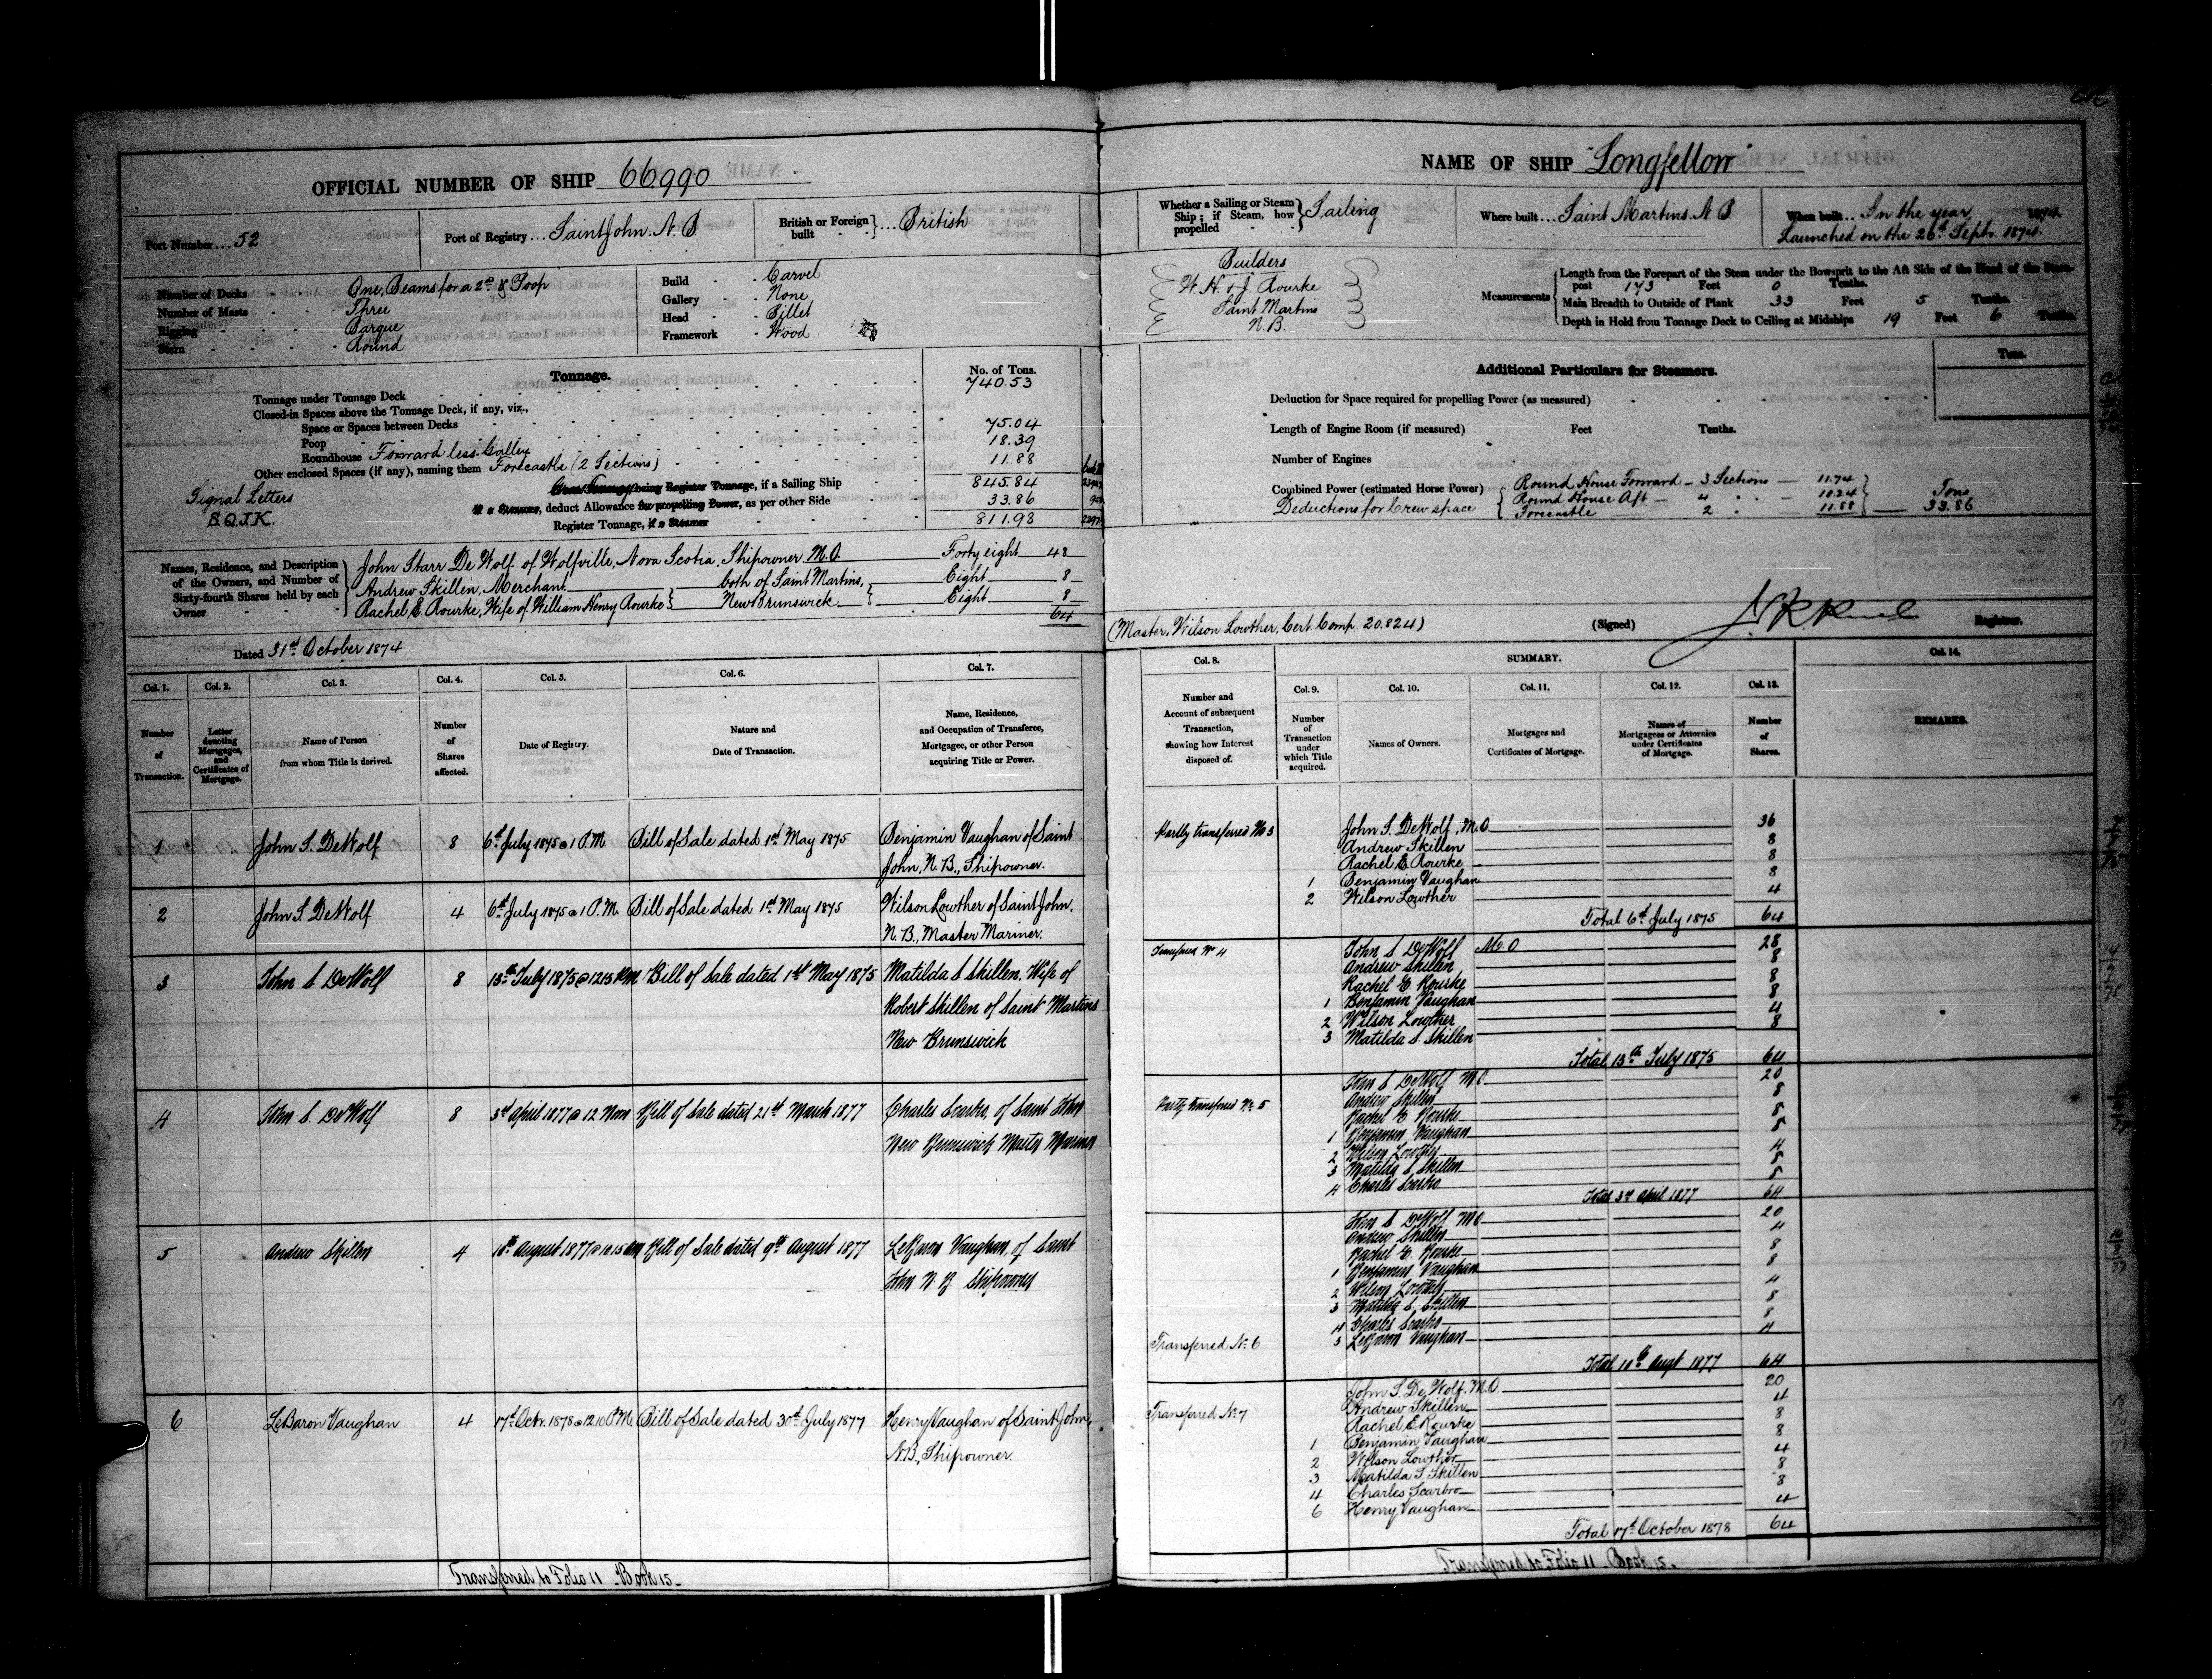 OFFICIAL NUMBER OF SHIP 66990
Port Number ... 52
Port of Registry ... Saint John. N. B
British or Foreign built } ... British
Number of Decks - - One, Beams for a 2nd & Poop
Number of Masts - - Three
Rigging - - Barque
Stern - - Round
Build - - Carvel
Gallery - - None
Head - - Billet
Framework - Wood
Tonnage.
No. of Tons.
Tonnage under Tonnage Deck 740.53
Closed-in Spaces above the Tonnage Deck, if any, viz.,
Space or Spaces between Decks
Poop 75.04
Roundhouse Forward less Galley 18.39
Other enclosed Spaces (if any), naming them Forecastle (2 Sections) 11.88
Gross Tonnage being Register Tonnage, if a Sailing Ship 845.84
If a Steamer, deduct Allowance for propelling Power, as per other Side 33.86
Register Tonnage, if a Steamer 811.98
Signal Letters
Names, Residence, and Description of the Owners, and Number of Sixty-fourth Shares held by each Owner
John Starr De Wolf of Wolfville, Nova Scotia, Shipowner M.O Forty eight 48
Andrew Skillen, Merchant both of Saint Martins, Eight 8
Rachel E. Rourke, Wife of William Henry Rourke } New Brunswick Eight 8
64
Dated 31st October 1874
Col. 1. Col. 2. Col. 3. Col. 4. Col. 5. Col. 6. Col. 7.
Number of Transaction.
Letter denoting Mortgages, and Certificates of Mortgage.
Name of Person from whom Title is derived.
Number of Shares affected.
Date of Registry.
Nature and Date of Transaction.
Name, Residence, and Occupation of Transferee, Mortgagee, or other Person acquiring Title or Power.
1 John S. DeWolf 8 6th July 1875 @ 1 P.M. Bill of Sale dated 1st May 1875 Benjamin Vaughan of Saint
John, N.B., Shipowner.
2 John S. DeWolf 4 6th July 1875 @ 1 P.M. Bill of Sale dated 1st May 1875 Wilson Lowther of Saint John,
N.B., Master Mariner.
3 John S DeWolf 8 13th July 1875 @ 12 15 P.M Bill of Sale dated 1st May 1875 Matilda S Skillen, Wife of
Robert Skillen of Saint Martins
New Brunswick
4 John S DeWolf 8 3rd April 1877 @ 12 Noon Bill of Sale dated 21st March 1877 Charles Scarbro, of Saint John
New Brunswick Master Mariner
5 Andrew Skillen 4 August 1877 Bill of Sale dated 9th August 1877 LeBaron Vaughan, of Saint
John N B Shipowner
6 LeBaron Vaughan 4 17th Octr. 1878 @ 12.10 P.M. Bill of Sale dated 30th July 1877 Henry Vaughan of Saint John,
N.B., Shipowner.
Transferred to Folio 11 Book 15.
NAME OF SHIP "Longfellow"
Whether a Sailing or Steam Ship; if Steam, how propelled } Sailing
Where built ... Saint Martins. N B.
When built ... In the year 1874.
Launched on the 26th Septr. 1874.
Builders
W. H. & J. Rourke
Saint Martins
N.B.
Measurements
Length from the Forepart of the Stem under the Bowsprit to the Aft Side of the Head of the Stern-
post 173 Feet 0 Tenths.
Main Breadth to Outside of Plank 33 Feet 5 Tenths.
Depth in Hold from Tonnage Deck to Ceiling at Midships 19 Feet 6 Tenths.
Tons.
Additional Particulars for Steamers.
Deduction for Space required for propelling Power (as measured)
Length of Engine Room (if measured) Feet Tenths.
Number of Engines
Combined Power (estimated Horse Power)
Deductions for Crew space
Round House Forward - 3 Sections - 11.74
Round House Aft - 4 " - 10.24
Forecastle 2 " 11.88
Tons
33.86
(Master, Wilson Lowther, Cert. Comp. 20.824) (Signed) Registrar.
Col. 8. SUMMARY. Col. 14.
Col. 9. Col. 10. Col. 11. Col. 12. Col. 13.
Number and Account of subsequent Transaction, showing how Interest disposed of.
Number of Transaction under which Title acquired.
Names of Owners.
Mortgages and Certificates of Mortgage.
Names of Mortgagees or Attornies under Certificates of Mortgage.
Number of Shares.
REMARKS.
Partly transferred No 3 John S. DeWolf, M.O 36
Andrew Skillen 8
Rachel E. Rourke 8
1 Benjamin Vaughan 8
2 Wilson Lowther 4
Total 6th July 1875 64
Transferred No 4 John S DeWolf M.O 28
Andrew Skillen 8
Rachel E. Rourke 8
1 Benjamin Vaughan 8
2 Wilson Lowther 4
3 Matilda S. Skillen 8
Total 13th July 1875 64
Partly transferred No 5 John S DeWolf M O 20
Andrew Skillen 8
Rachel E Rourke 8
1 Benjamin Vaughan 8
2 Wilson Lowther 4
3 Matilda S Skillen 8
4 Charles Scarbro 8
Total 3rd April 1877 64
John S DeWolf M O 20
Andrew Skillen 4
Rachel E. Rourke 8
1 Benjamin Vaughan 8
2 Wilson Lowther 4
3 Matilda S. Skillen 8
4 Charles Scarbro 8
Transferred No 6 5 LeBaron Vaughan 4
Total Augt 1877 64
Transferred No 7 John S. De Wolf. M.O. 20
Andrew Skillen 4
Rachel E Rourke 8
1 Benjamin Vaughan 8
2 Wilson Lowther 4
3 Matilda S Skillen 8
4 Charles Scarbro 8
6 Henry Vaughan 4
Total 17th October 1878 64
Transferred to Folio 11 Book 15.